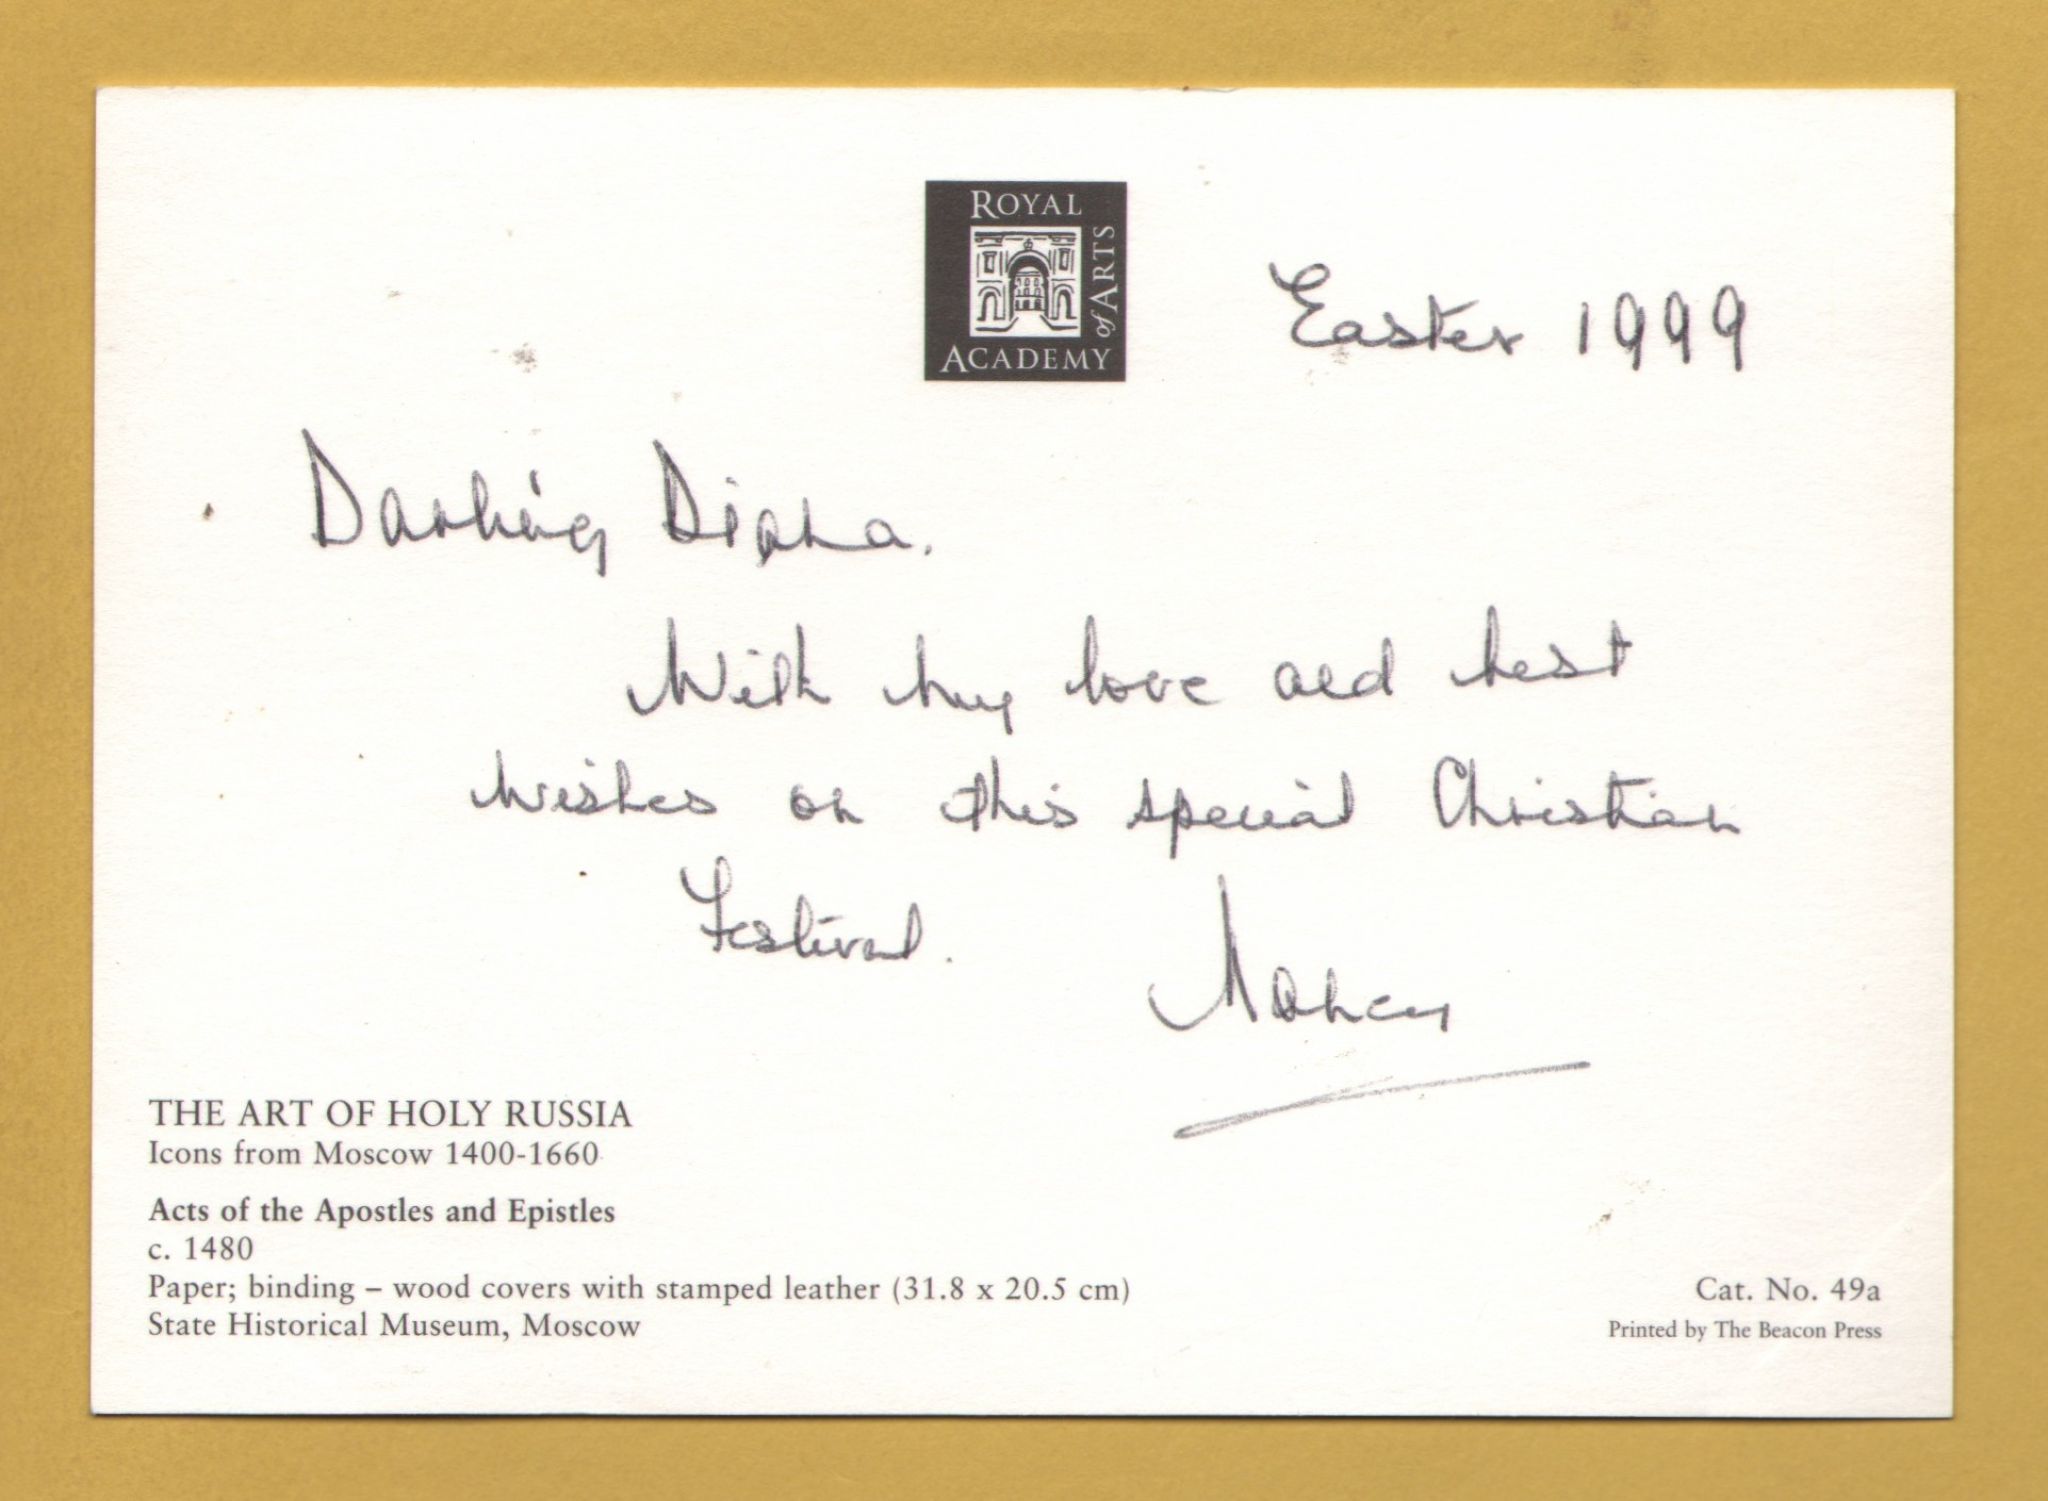 ROYAL
ACADEMY
of ARTS
Easter 1999
Darling Diana.
With my love and best
wishes on this special Christian
Festival.
Nancy
THE ART OF HOLY RUSSIA
Icons from Moscow 1400-1660
Acts of the Apostles and Epistles
c. 1480
Paper; binding – wood covers with stamped leather (31.8 x 20.5 cm)
State Historical Museum, Moscow
Cat. No. 49a
Printed by The Beacon Press